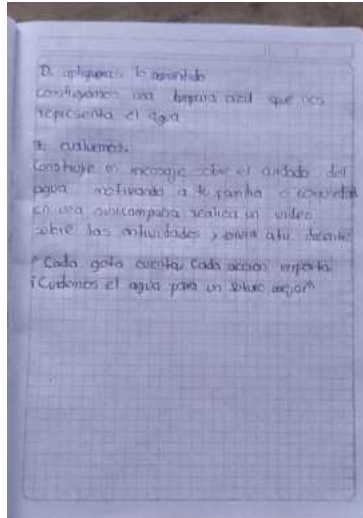 D. apliquemos lo aprendido
construyamos una lampara azul que nos
representa el agua
E. evaluemos.
Construye un mensaje sobre el cuidado del
agua motivando a tu familia o comunidad
en una minicampaña realiza un video
sobre las actividades y envia a tu docente
"Cada gota cuenta, Cada acción importa
¡Cuidemos el agua para un futuro mejor"